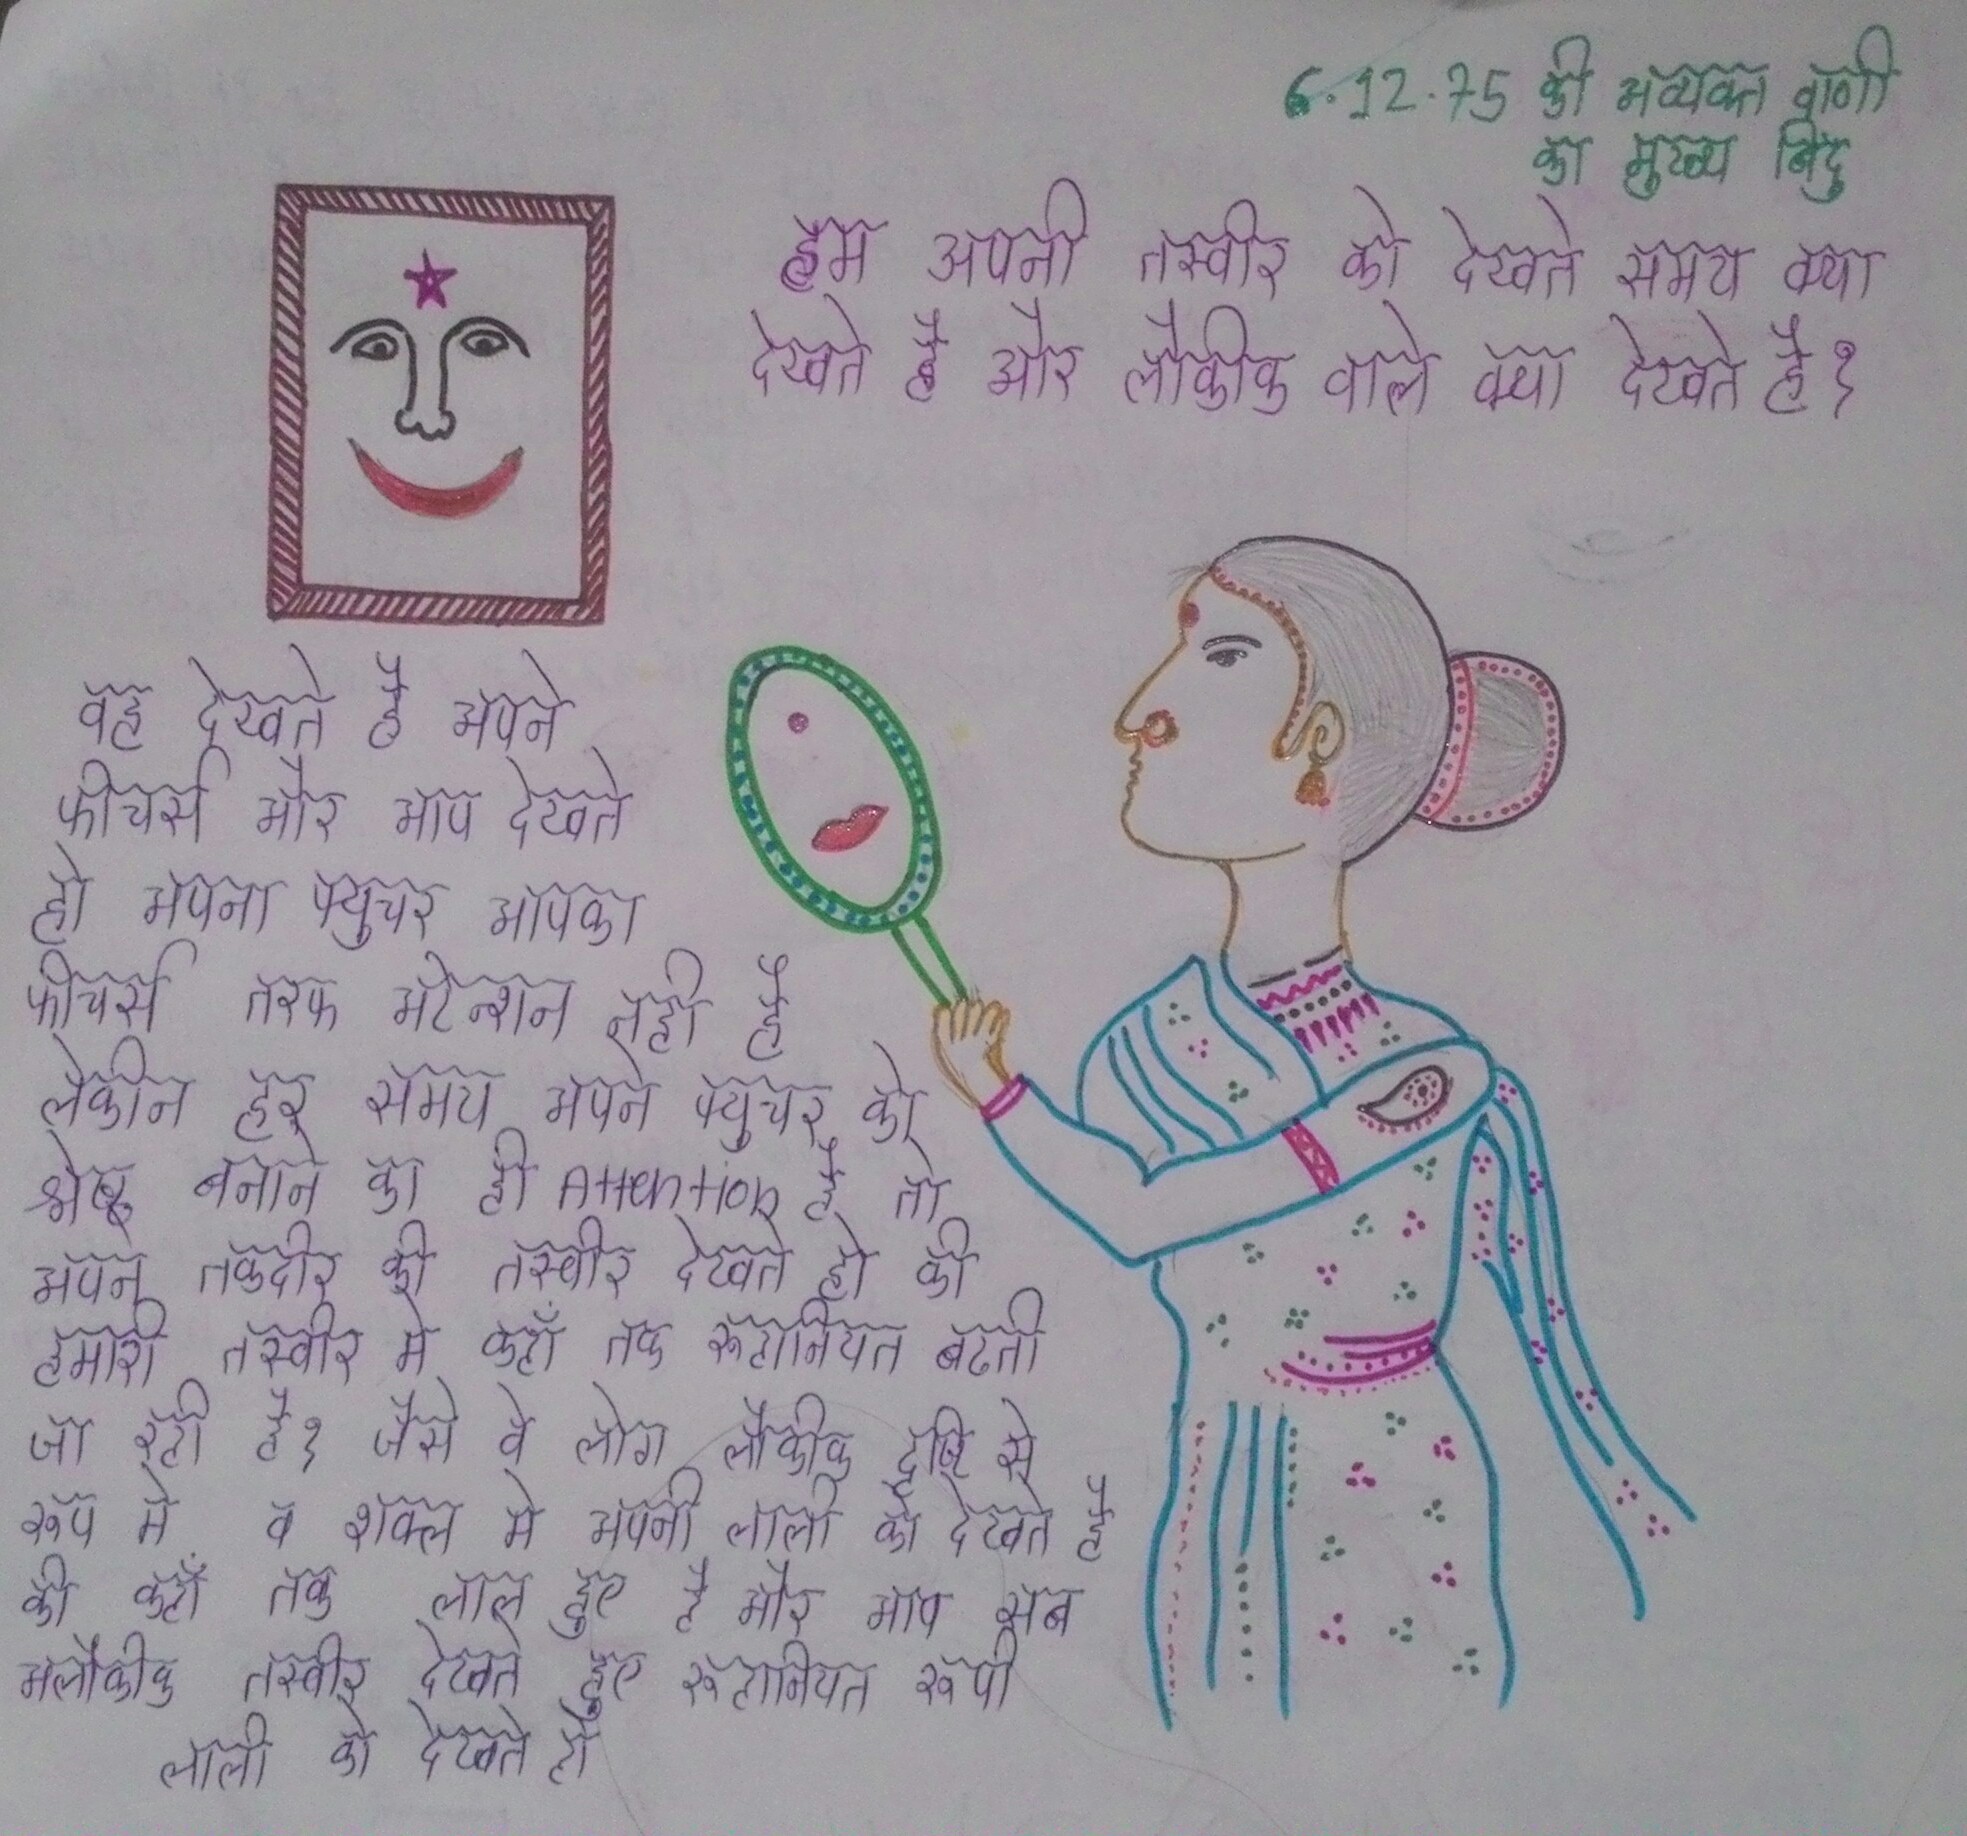 6.12.75 की अव्यक्त वाणी
का मुख्य बिंदु
हम अपनी तस्वीर को देखते समय क्या
देखते है और लौकीक वाले क्या देखते है?
वह देखते है अपने
फीचर्स और आप देखते
हो अपना फ्युचर आपका
फीचर्स तरफ अटेन्शन नही है
लेकीन हर समय अपने फ्युचर को
श्रेष्ठ बनाने का ही Attention है तो
अपने तकदीर की तस्वीर देखते हो की
हमारी तस्वीर मे कहाँ तक रूहानियत बढती
जा रही है? जैसे वे लोग लौकीक दृष्टि से
रूप मे व शक्ल मे अपनी लाली को देखते है
की कहाँ तक लाल हुए है और आप सब
अलौकीक तस्वीर देखते हुए रूहानियत रूपी
लाली को देखते हो